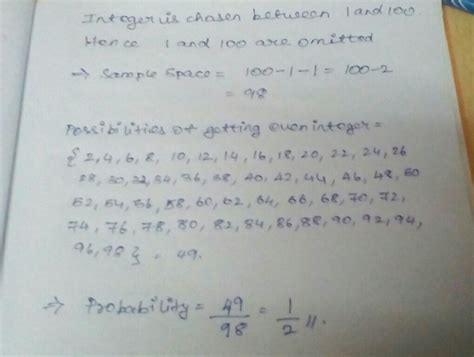 Integer is chosen between 1 and 100.
Hence 1 and 100 are omitted
⇒ Sample Space = 100-1-1 = 100-2
= 98
Possibilities of getting even integer =
{ 2, 4, 6, 8, 10, 12, 14, 16, 18, 20, 22, 24, 26
28, 30, 32, 34, 36, 38, 40, 42, 44, 46, 48, 50
52, 54, 56, 58, 60, 62, 64, 66, 68, 70, 72,
74, 76, 78, 80, 82, 84, 86, 88, 90, 92, 94,
96, 98 } = 49.
⇒ Probability = 49/98 = 1/2 //.